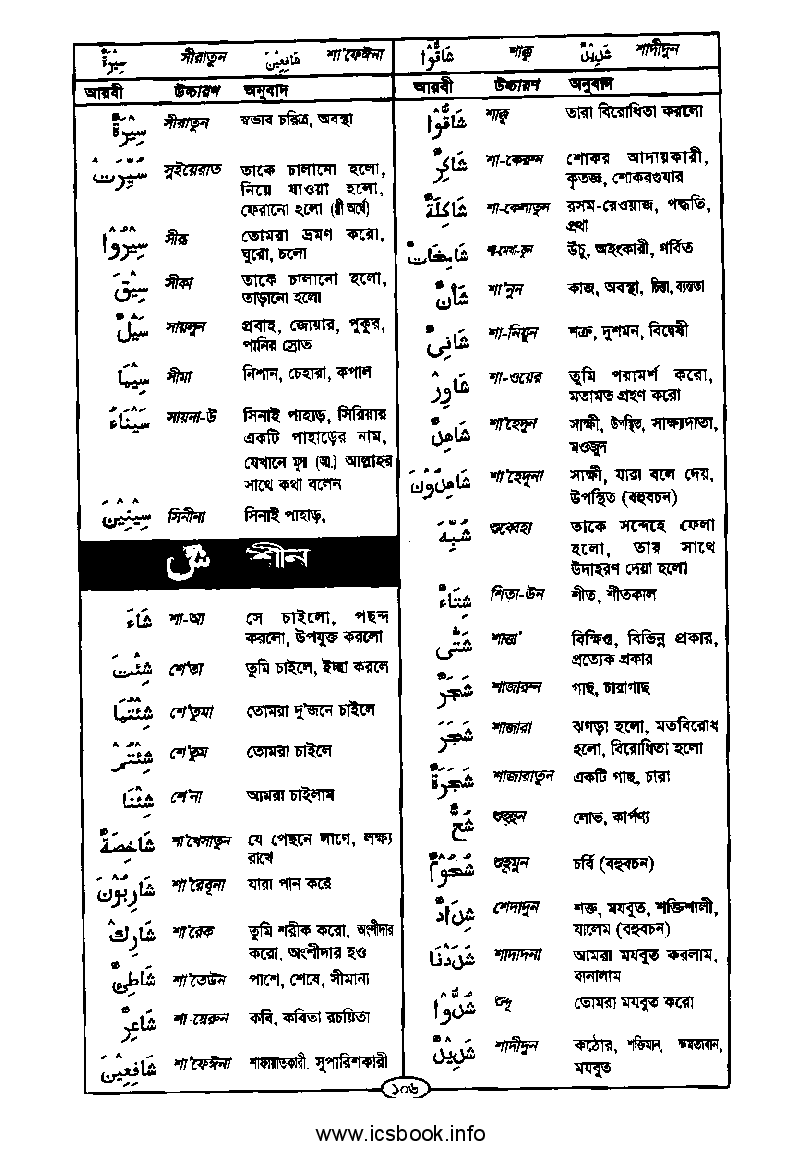 سِيْرَةٌ সীরাতুন شَافِعِيْنَ শা'ফেঈনা
আরবী উচ্চারণ অনুবাদ
سِيْرَةٌ সীরাতুন স্বভাব চরিত্র, অবস্থা
سُيِّرَتْ সুইয়েরাত তাকে চালানো হলো,
নিয়ে যাওয়া হলো,
ফেরানো হলো (স্ত্রী অর্থে)
سِيْرُوْا সীরু তোমরা ভ্রমণ করো,
ঘুরো, চলো
سِيْقَ সীকা তাকে চালানো হলো,
তাড়ানো হলো
سَيْلٌ সায়লুন প্রবাহ, জোয়ার, পুকুর,
পানির স্রোত
سِيْمَا সীমা নিশান, চেহারা, কপাল
سَيْنَاءُ সায়না-উ সিনাই পাহাড়, সিরিয়ার
একটি পাহাড়ের নাম,
যেখানে মূসা (আ.) আল্লাহর
সাথে কথা বলেন
سِيْنِيْنَ সিনীনা সিনাই পাহাড়,
ش শীন
شَاءَ শা-আ সে চাইলো, পছন্দ
করলো, উপযুক্ত করলো
شِئْتَ শে'তা তুমি চাইলে, ইচ্ছা করলে
شِئْتُمَا শে'তুমা তোমরা দু'জনে চাইলে
شِئْتُمْ শে'তুম তোমরা চাইলে
شِئْنَا শে'না আমরা চাইলাম
شَاخِصَةٌ শা'খেসাতুন যে পেছনে লাগে, লক্ষ্য
রাখে
شَارِبُوْنَ শা'রেবূনা যারা পান করে
شَارِكْ শা'রেক তুমি শরীক করো, অংশীদার
করো, অংশীদার হও
شَاطِئِ শা'তেউন পাশে, শেষে, সীমানা
شَاعِرٌ শা-য়েরুন কবি, কবিতা রচয়িতা
شَافِعِيْنَ শা'ফেঈনা শাফায়াতকারী, সুপারিশকারী
شَاقُّوْا শাক্কু شَدِيْدٌ শাদীদুন
আরবী উচ্চারণ অনুবাদ
شَاقُّوْا শাক্কু তারা বিরোধিতা করলো
شَاكِرٌ শা-কেরুন শোকর আদায়কারী,
কৃতজ্ঞ, শোকরগুযার
شَاكِلَةٌ শা-কেলাতুন রসম-রেওয়াজ, পদ্ধতি,
প্রথা
شَامِخَاتٌ শা-মেখা-তুন উঁচু, অহংকারী, গর্বিত
شَأْنٌ শা'নুন কাজ, অবস্থা, চিন্তা, ব্যস্ততা
شَانِئٌ শা-নিয়ুন শত্রু, দুশমন, বিদ্বেষী
شَاوِرْ শা-ওয়ের তুমি পরামর্শ করো,
মতামত গ্রহণ করো
شَاهِدٌ শা'হেদুন সাক্ষী, উপস্থিত, সাক্ষ্যদাতা,
মওজুদ
شَاهِدُوْنَ শা'হেদূনা সাক্ষী, যারা বলে দেয়,
উপস্থিত (বহুবচন)
شُبِّهَ শুব্বেহা তাকে সন্দেহে ফেলা
হলো, তার সাথে
উদাহরণ দেয়া হলো
شِتَاءٌ শিতা-উন শীত, শীতকাল
شَتّٰى শাত্তা বিক্ষিপ্ত, বিভিন্ন প্রকার,
প্রত্যেক প্রকার
شَجَرٌ শাজারুন গাছ, চারাগাছ
شَجَرَ শাজারা ঝগড়া হলো, মতবিরোধ
হলো, বিরোধিতা হলো
شَجَرَةٌ শাজারাতুন একটি গাছ, চারা
شُحَّ শুহ্হুন লোভ, কার্পণ্য
شُحُوْمٌ শুহূমুন চর্বি (বহুবচন)
شِدَادٌ শেদাদুন শক্ত, মযবুত, শক্তিশালী,
যালেম (বহুবচন)
شَدَدْنَا শাদাদনা আমরা মযবুত করলাম,
বানালাম
شُدُّوْا শুদ্দূ তোমরা মযবুত করো
شَدِيْدٌ শাদীদুন কঠোর, শক্তিমান, ক্ষমতাবান,
মযবুত
১০৬
www.icsbook.info